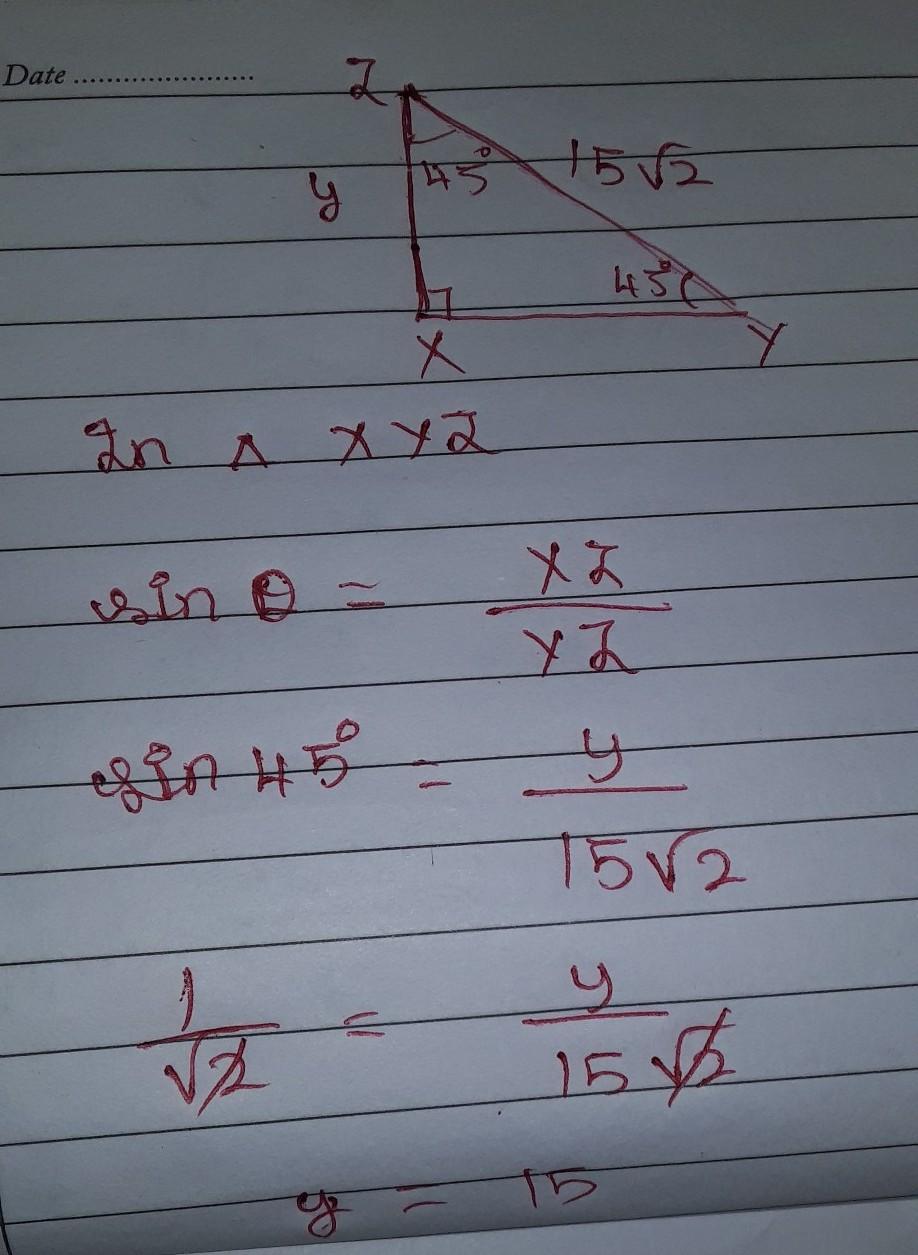 Date ........................
Z
45° 15√2
y
45°
X Y
In Δ XYZ
sin θ = XZ / YZ
sin 45° = y / 15√2
1 / √2 = y / 15√2
y = 15